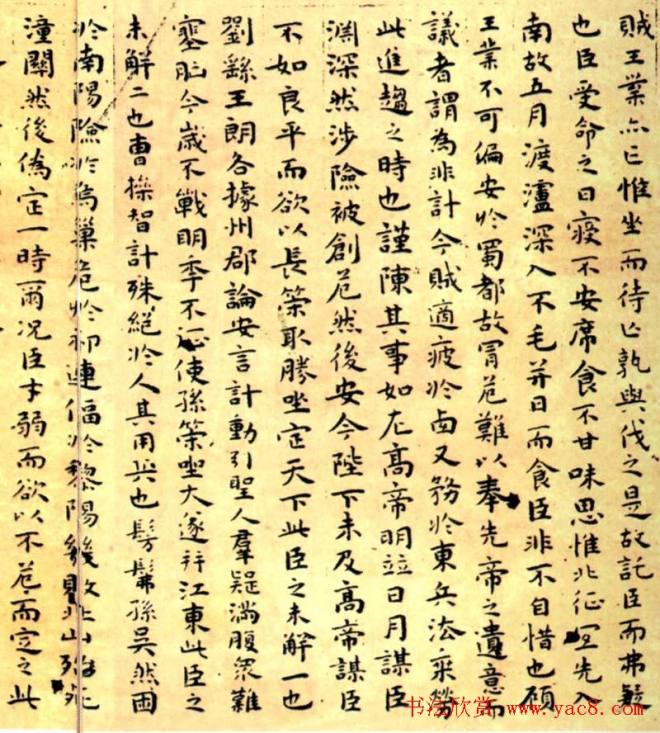 賊王業亦亡惟坐而待亡孰與伐之是故託臣而弗疑
也臣受命之日寑不安席食不甘味思惟北征冝先入
南故五月渡瀘深入不毛并日而食臣非不自惜也顧
王業不可偏安於蜀都故冐危難以奉先帝之遺意而
議者謂為非計今賊適疲於西又務於東兵法乘勞
此進趨之時也謹陳其事如左高帝明並日月謀臣
淵深然涉險被創危然後安今陛下未及高帝謀臣
不如良平而欲以長策取勝坐定天下此臣之未解一也
劉繇王朗各據州郡論安言計動引聖人羣疑滿腹衆難
塞胷今歲不戰明年不征使孫策坐大遂并江東此臣之
未解二也曹操智計殊絕於人其用兵也髣髴孫吳然困
於南陽險於烏巢危於祁連偪於黎陽幾敗北山殆死
潼關然後偽定一時爾况臣才弱而欲以不危而定之此
书法欣赏 www.yac8.com